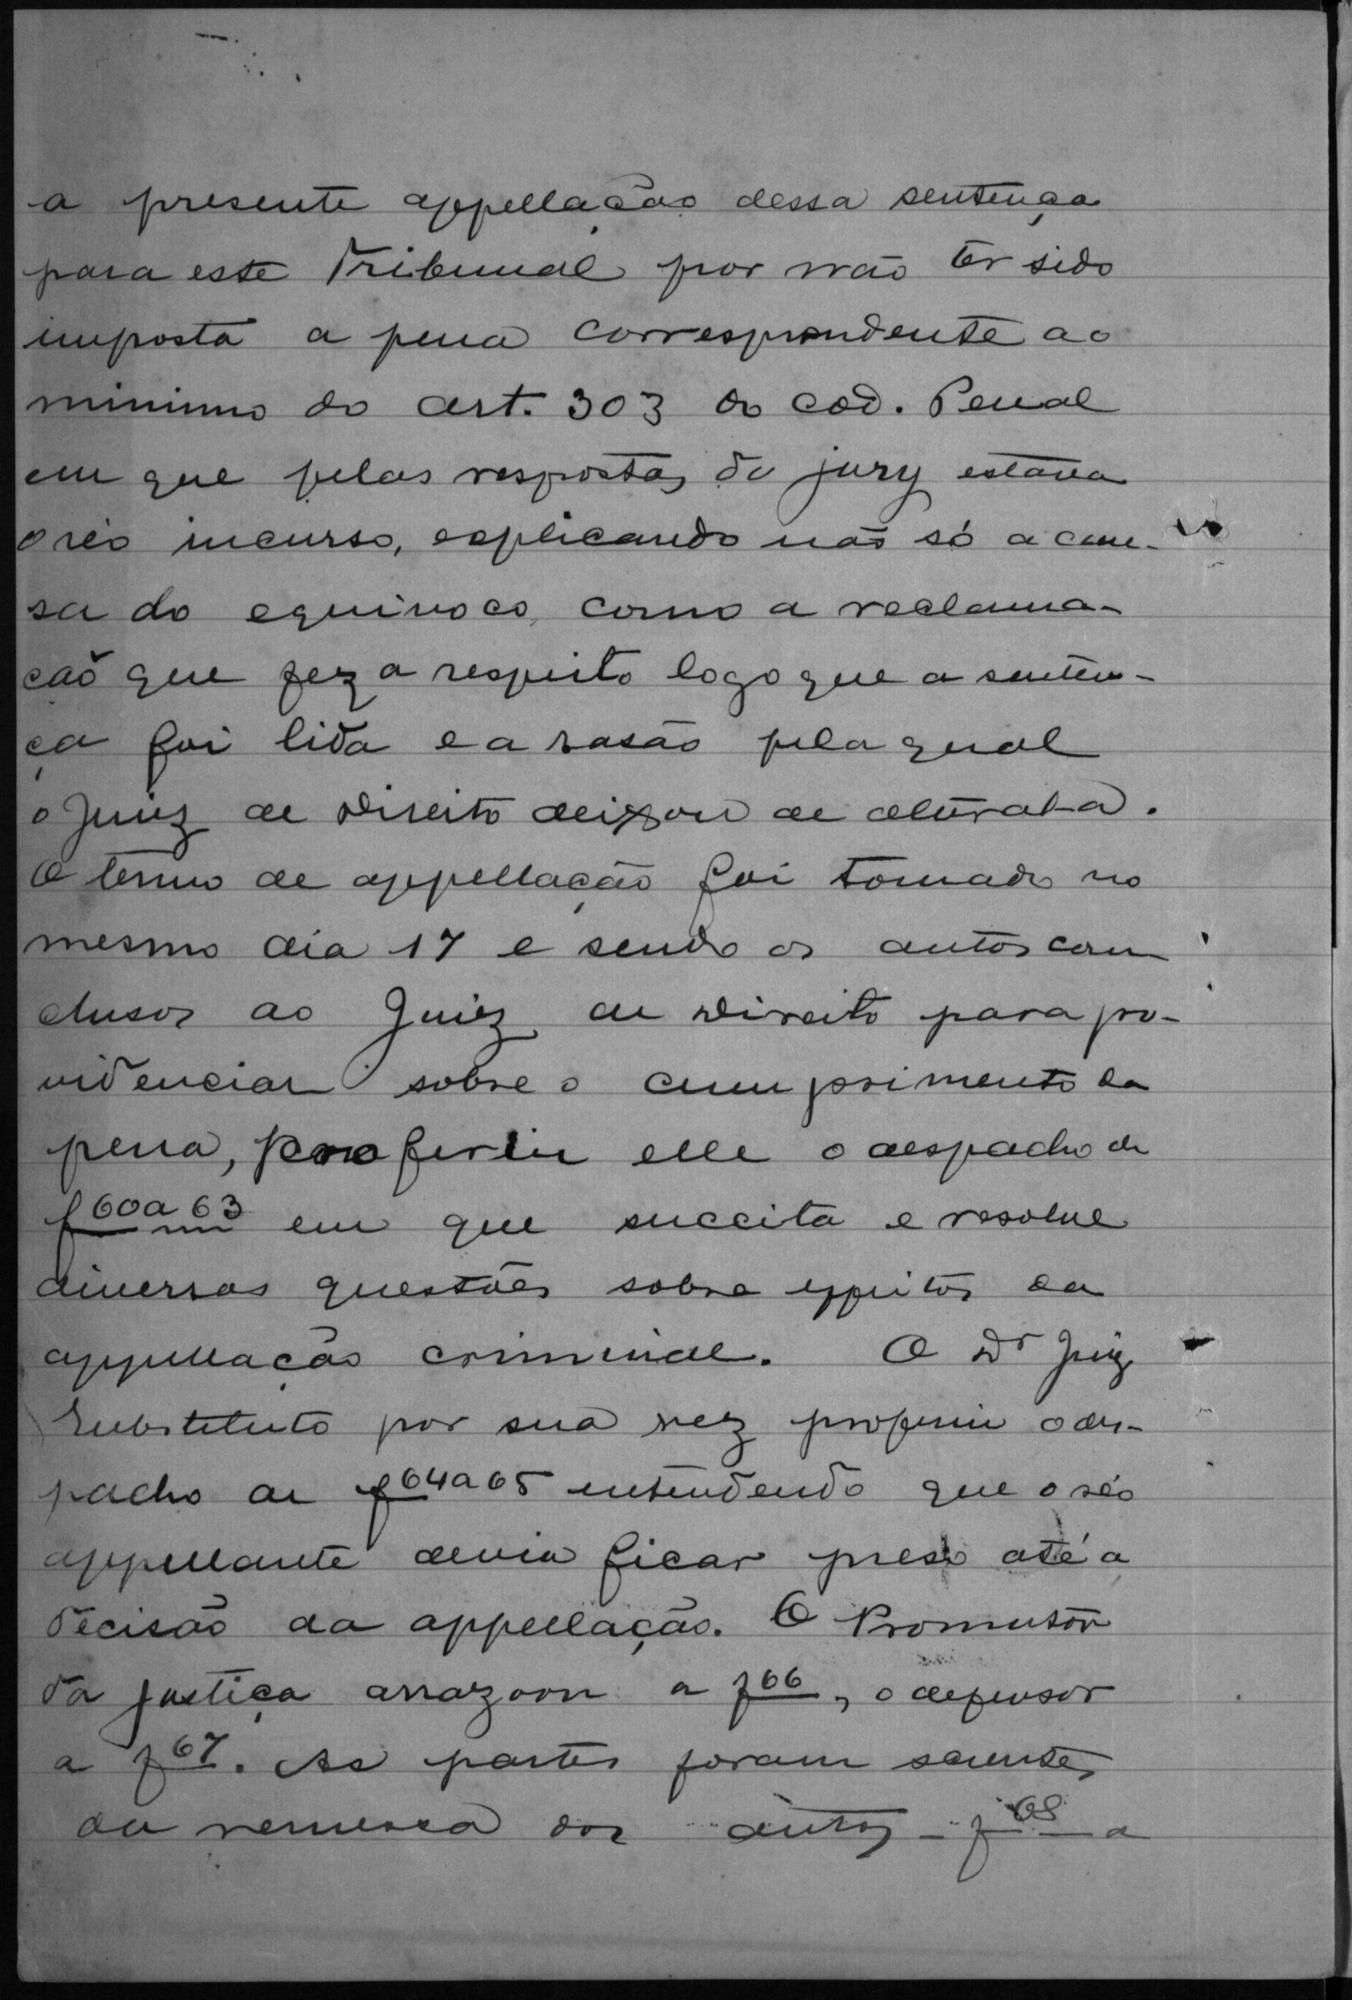 a presente appellação dessa sentença
para este Tribunal por não ter sido
imposta a pena correspondente ao
minimo do art. 303 do cod. Penal
em que pelas respostas do jury estava
o réo incurso, explicando não só a cau-
sa do equivoco, como a reclama-
ção que fez a respeito logo que a senten-
ça foi lida e a rasão pela qual
o Juiz de Direito deixou de alteral-a.
O termo de appellação foi tomado no
mesmo dia 17 e sendo os autos con
clusos ao Juiz de Direito para pro-
videnciar sobre o cumprimento da
pena, proferiu elle o despacho de
f 60 a 63 em que succita e resolve
diversas questões sobre effeitos da
appellação criminal. O Dr Juiz
Substituto por sua vez proferiu o des-
pacho de f 64 a 65 entendendo que o réo
appellante devia ficar preso até a
decisão da appellação. O Promotor
da justiça arrazoou a f 66, o defensor
a f 67. As partes foram scientes
da remessa dos autos - f 68 a